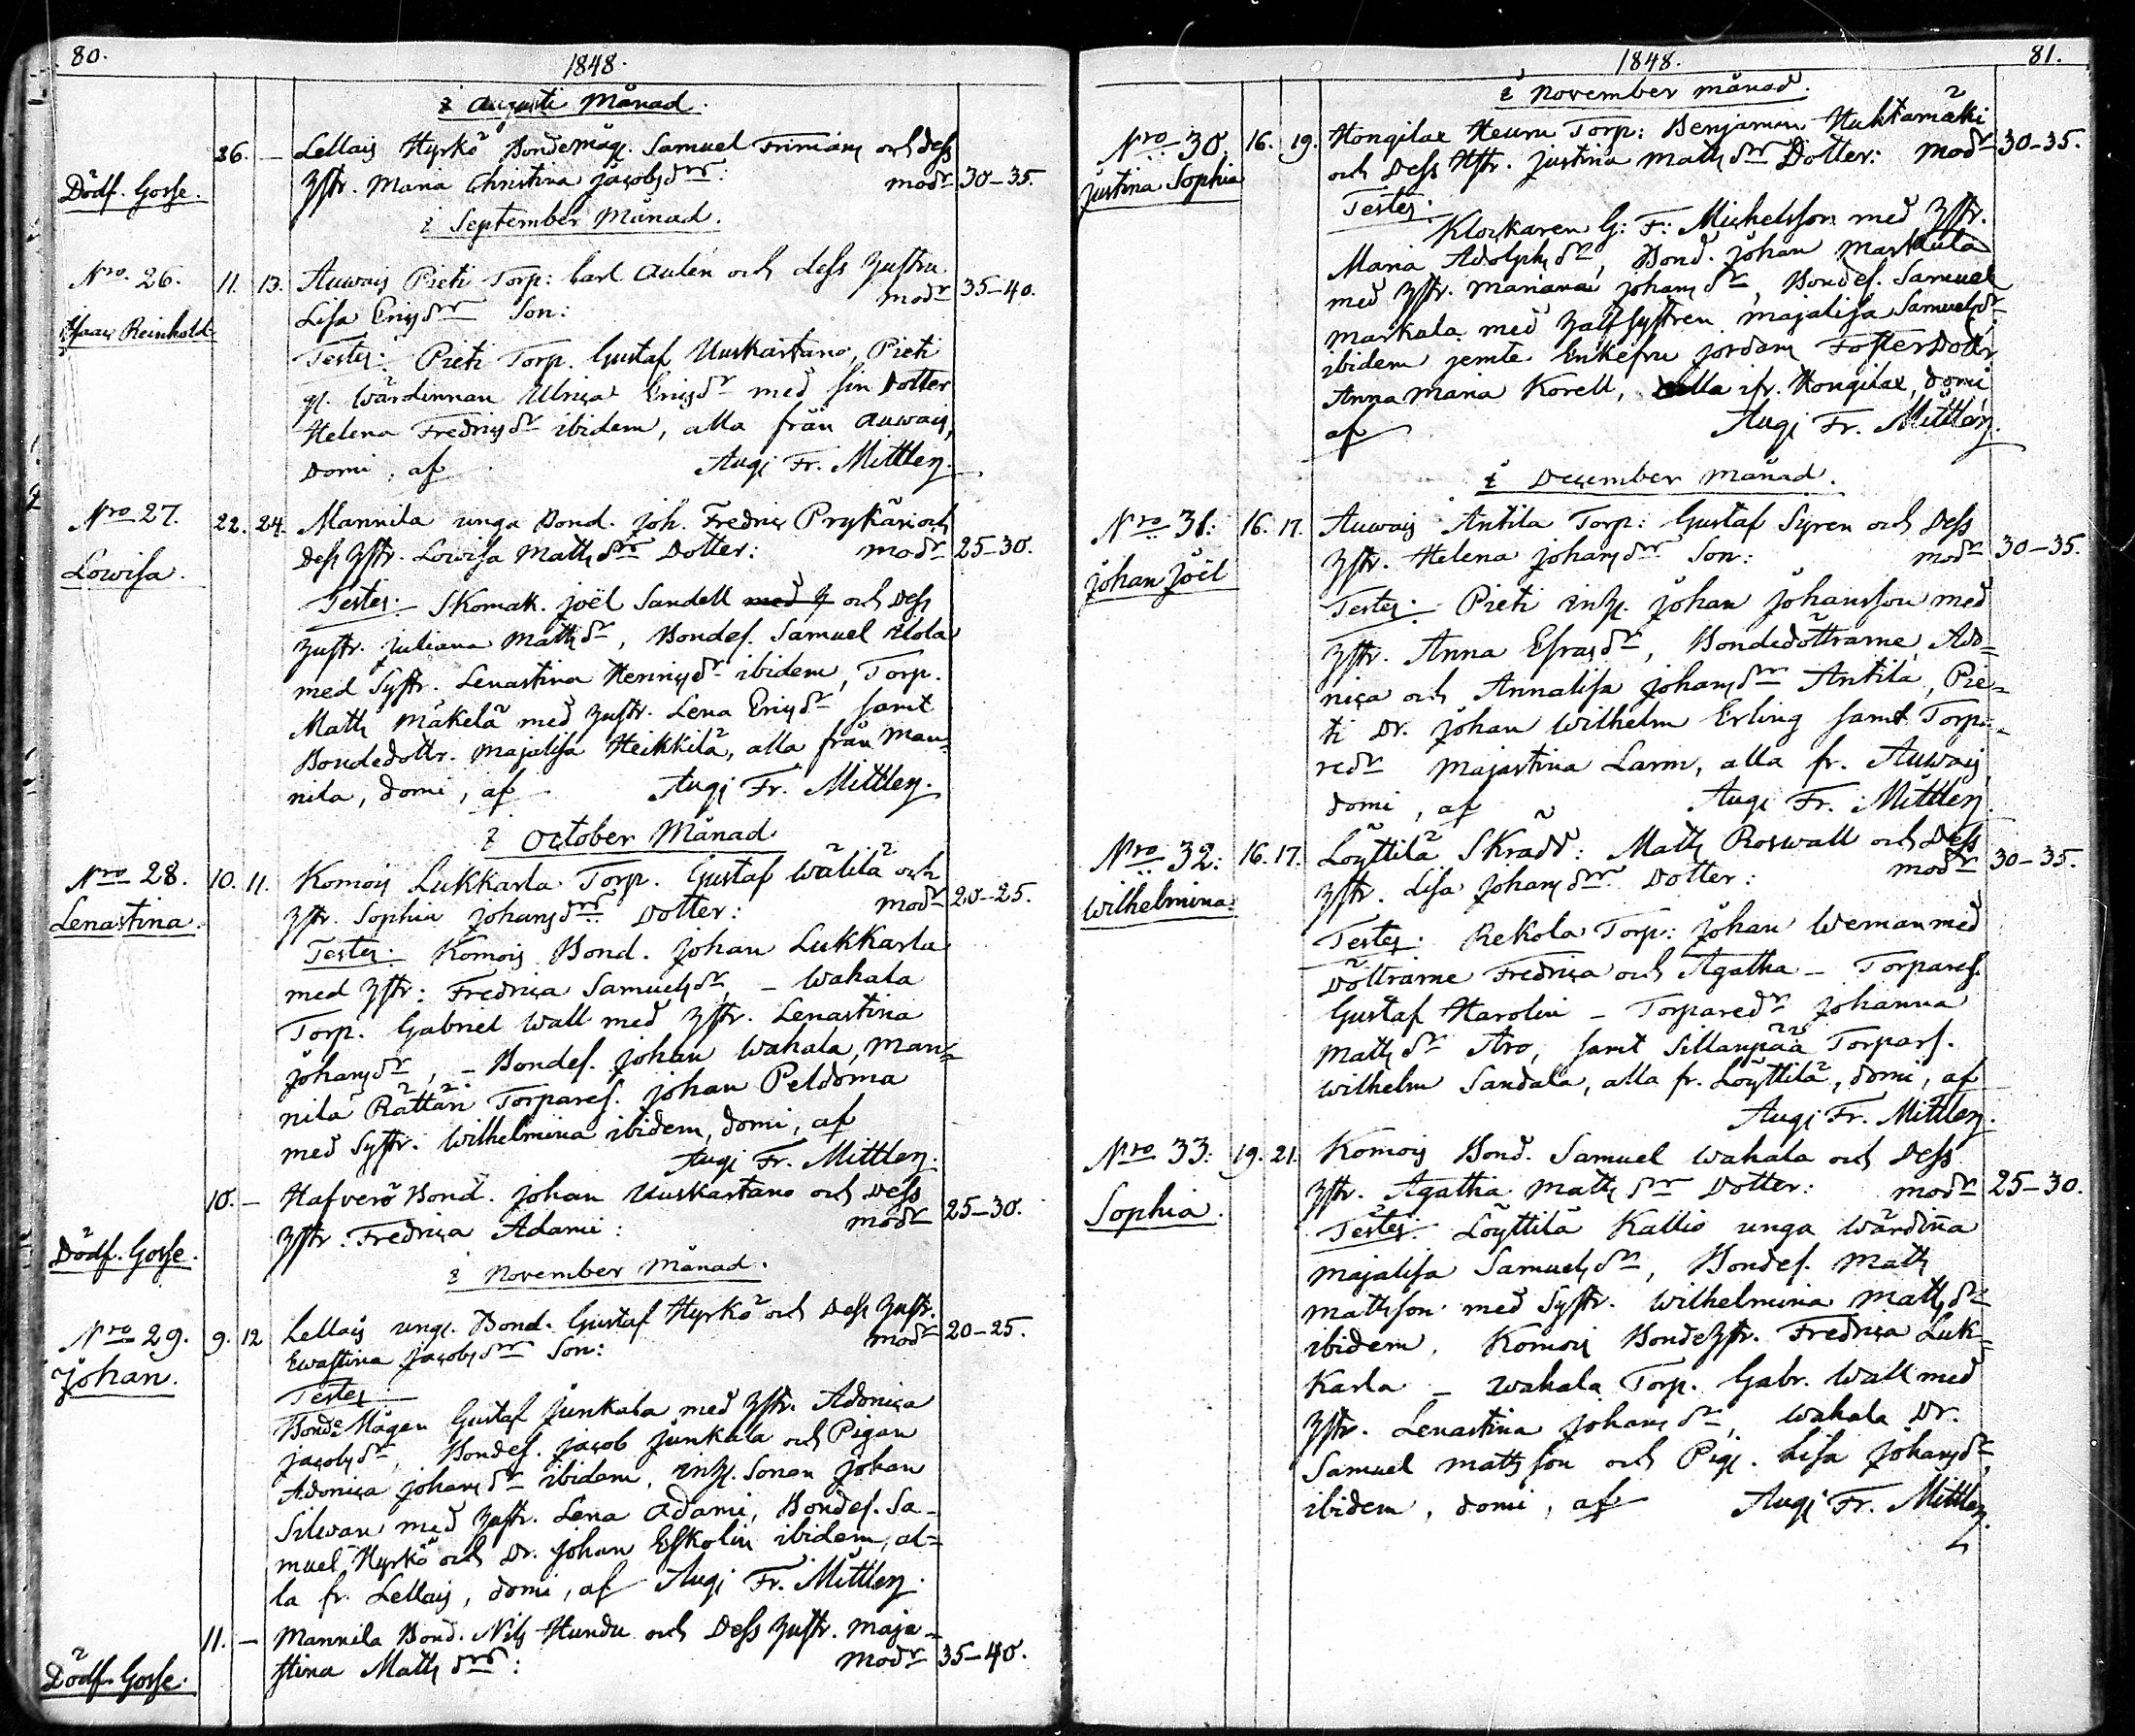 80.
1848.
i Augusti Månad.
Dödf. Gosse.
26. — Lellais Hyrkö Bondemåg. Samuel Frimans och dess
Hstr. Maria Christina Jacobsdr: modr 30–35.
i September Månad.
Nro. 26. 11. 13. Auwais Pieti Torp: Carl Aulén och dess hustru
Isaac Reinhold
Lisa Ericsdr Son: modr 35–40.
Testes: Pieti Torp. Gustaf Uuskartano, Pieti
gl. Wärdinnan Ulrica Ericsdr med sin Dotter
Helena Fredricsdr ibidem, alla från Auwais,
Domi, af Augi Fr. Mittler.
Nro 27. 22. 24. Mannila unga Bond. Joh. Fredric Prykäri och
Lowisa.
Dess Hstr. Lowisa Mattsdr Dotter: modr 25–30.
Testes: Skomak. Joël Sandell med H och Dess
Hustr. Juliana Mattsdr, Bondes. Samuel Klola
med Systr. Lenastina Henricsdr ibidem, Torp.
Matts Mäkelä med Hustr. Lena Ericsdr samt
Bondedottr. Majalisa Heikkilä, alla från Man=
nila, domi, af Augi Fr. Mittler.
i October Månad.
Nro 28. 10. 11. Komois Lukkarla Torp. Gustaf Wälilä och
Lenastina.
Hstr. Sophia Johansdr Dotter: modr 20–25.
Testes: Komois Bond. Johan Lukkarla
med Hstr: Fredrica Samuelsdr, – Wahala
Torp. Gabriel Wall med Hstr. Lenastina
Johansdr, – Bondes. Johan Wahala, Man=
nila Rättäri Torpares. Johan Peldoma
med Systr. Wilhelmina ibidem, domi, af
Augi Fr. Mittler.
10. — Hafverö Bond. Johan Uuskartano och Dess
Dödf. Gosse.
Hstr. Fredrica Adami: modr 25–30.
i November Månad.
Nro 29. 9. 12 Lellais ung. Bond. Gustaf Hyrkö och Dess Hustr.
Johan.
Ewastina Jacobsdr Son: modr 20–25.
Testes:
Bonde Mågen Gustaf Junkala med Hstr. Adonica
Jacobsdr, Bondes. Jacob Junkala och Pigan
Adonica Johansdr ibidem, Inh. Sonen Johan
Silwan med Hustr. Lena Adami, Bondes. Sa=
muel Hyrkö och Dr. Johan Eskolin ibidem, al=
la fr. Lellais, domi, af Augi Fr. Mittler.
11. — Mannila Bond. Nils Hundu och Dess Hustr. Maja=
Dödf. Gosse.
stina Mattsdr: modr 35–40.
1848.
81.
i November månad.
Nro 30. 16. 19. Hongilax Heuru Torp: Benjamin Huhtamäki
Justina Sophia
och Dess Hstr. Justina Mattsdr Dotter: modr 30–35.
Testes:
Klockaren G: F: Michelsson med Hstr.
Maria Adolphsdr, Bond. Johan Markula
med Hstr. Mariana Johansdr, Bondes. Samuel
Markula med Halfsystren Majalisa Samuelsdr
ibidem jemte Enkefru Jordans Fosterdottr
Anna Maria Korell, alla ifr. Hongilax, domi,
af Augi Fr. Mittler.
i December månad.
Nro 31: 16. 17. Auwais Antila Torp: Gustaf Syren och Dess
Johan Joël
Hstr. Helena Johansdr Son: modr 30–35.
Testes: Pieti Inh. Johan Johansson med
Hstr. Anna Esrasdr, Bondedöttrarne Ado=
nica och Annalisa Johansdr Antila, Pie=
ti Dr. Johan Wilhelm Erling samt Torpa=
redr Majastina Larm, alla fr. Auwais,
domi, af Augi Fr. Mittler.
Nro 32: 16. 17. Löyttilä Skrädd: Matts Roswall och Dess
Wilhelmina.
Hstr. Lisa Johansdr Dotter: modr 30–35.
Testes: Rekola Torp: Johan Weman med
Döttrarne Fredrica och Agatha – Torpares.
Gustaf Harolin – Torparedr Johanna
Mattsdr Aro, samt Sillanpää Torpars.
Wilhelm Sandala, alla fr. Löyttilä, domi, af
Augi Fr. Mittler.
Nro 33: 19. 21. Komois Bond. Samuel Wahala och Dess
Sophia.
Hstr. Agatha Mattsdr Dotter: modr 25–30.
Testes: Löyttilä Kallio unga Wärdiña
Majalisa Samuelsdr, Bondes. Matts
Mattsson med Systr. Wilhelmina Mattsdr
ibidem, Komois Bondehstr. Fredrica Luk=
karla – Wahala Torp. Gabr. Wall med
Hstr. Lenastina Johansdr, Wahala Dr.
Samuel Mattsson och Pig. Lisa Johansdr,
ibidem, domi, af Augi Fr. Mittler.